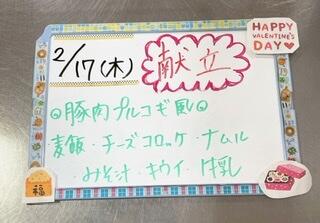 HAPPY
VALENTINE'S
DAY
2/17(木) 献立
◎豚肉プルコギ風◎
麦飯・チーズコロッケ・ナムル
みそ汁・キウイ・牛乳
福